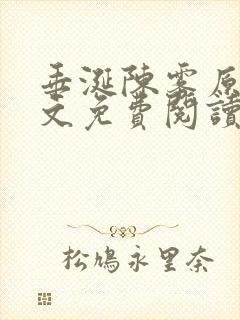 垂涎陳霧原
文免費閱讀
松鳩永里奈